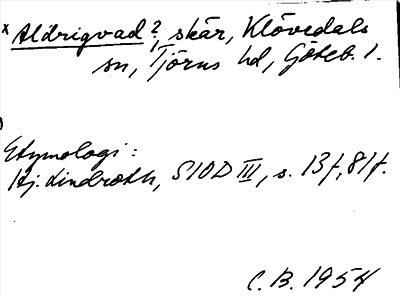 x Aldrigvad?, skär, Klövedals
sn, Tjörns hd, Göteb. l.
Etymologi:
Hj. Lindroth, SIOD III, s. 13f, 81f.
C.B. 1954